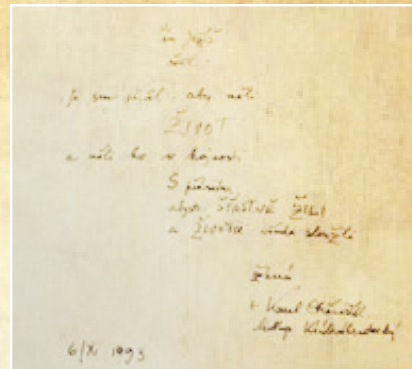 Pán Ježíš
řekl:
Já jsem přišel, aby měli
ŽIVOT
a měli ho v hojnosti
S přáním
abyste ŠŤASTNĚ ŽILI
a ŽIVOTU
žehná
+ Karel Otčenášek
biskup Královéhradecký
6/XI 1993